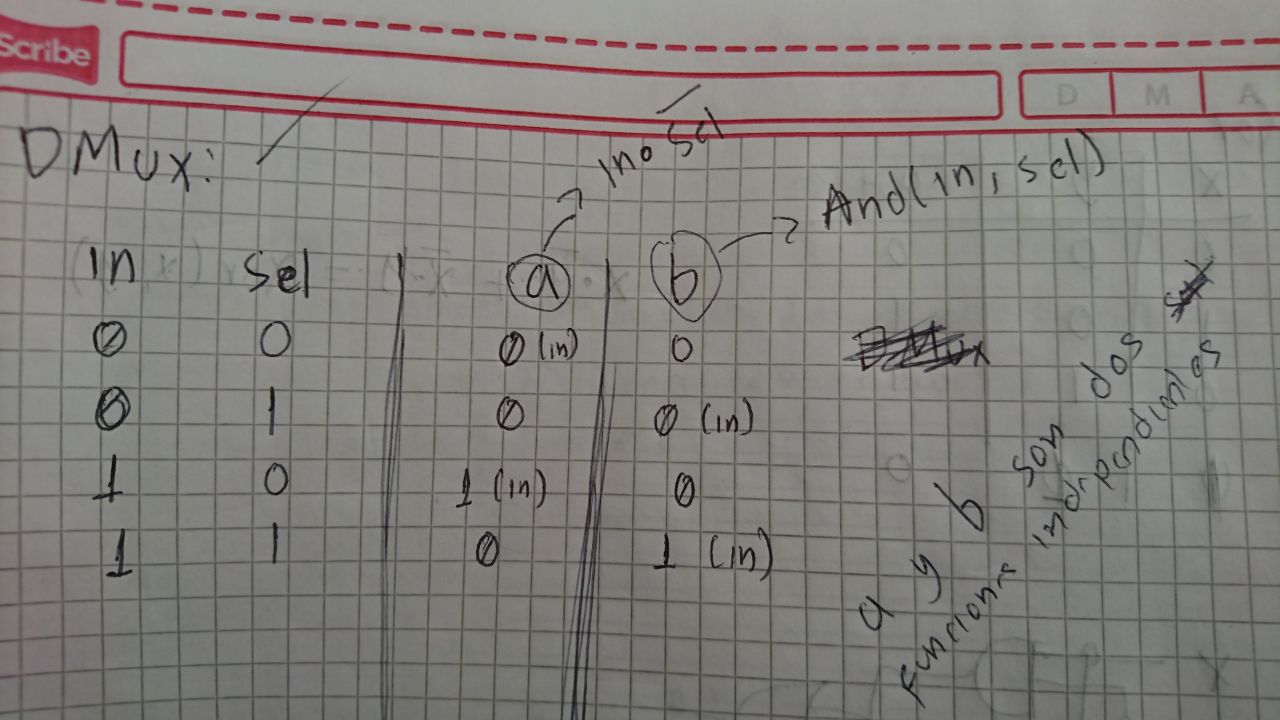 Scribe
D M A
DMux:
in • sel
And(in, sel)
in sel a b
0 0 0 (in) 0
0 1 0 0 (in)
1 0 1 (in) 0
1 1 0 1 (in)
a y b son dos
funciones independientes